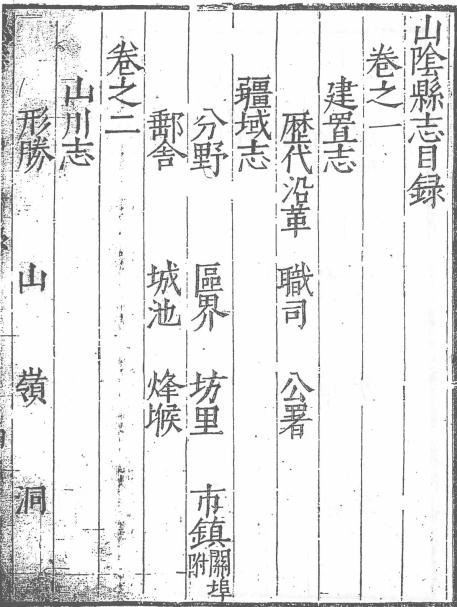 山陰縣志目録
卷之一
建置志
歷代沿革 職司 公署
疆域志
分野 區界 坊里 市鎮關埠附
郵舍 城池 烽堠
卷之二
山川志
形勝 山 嶺 洞